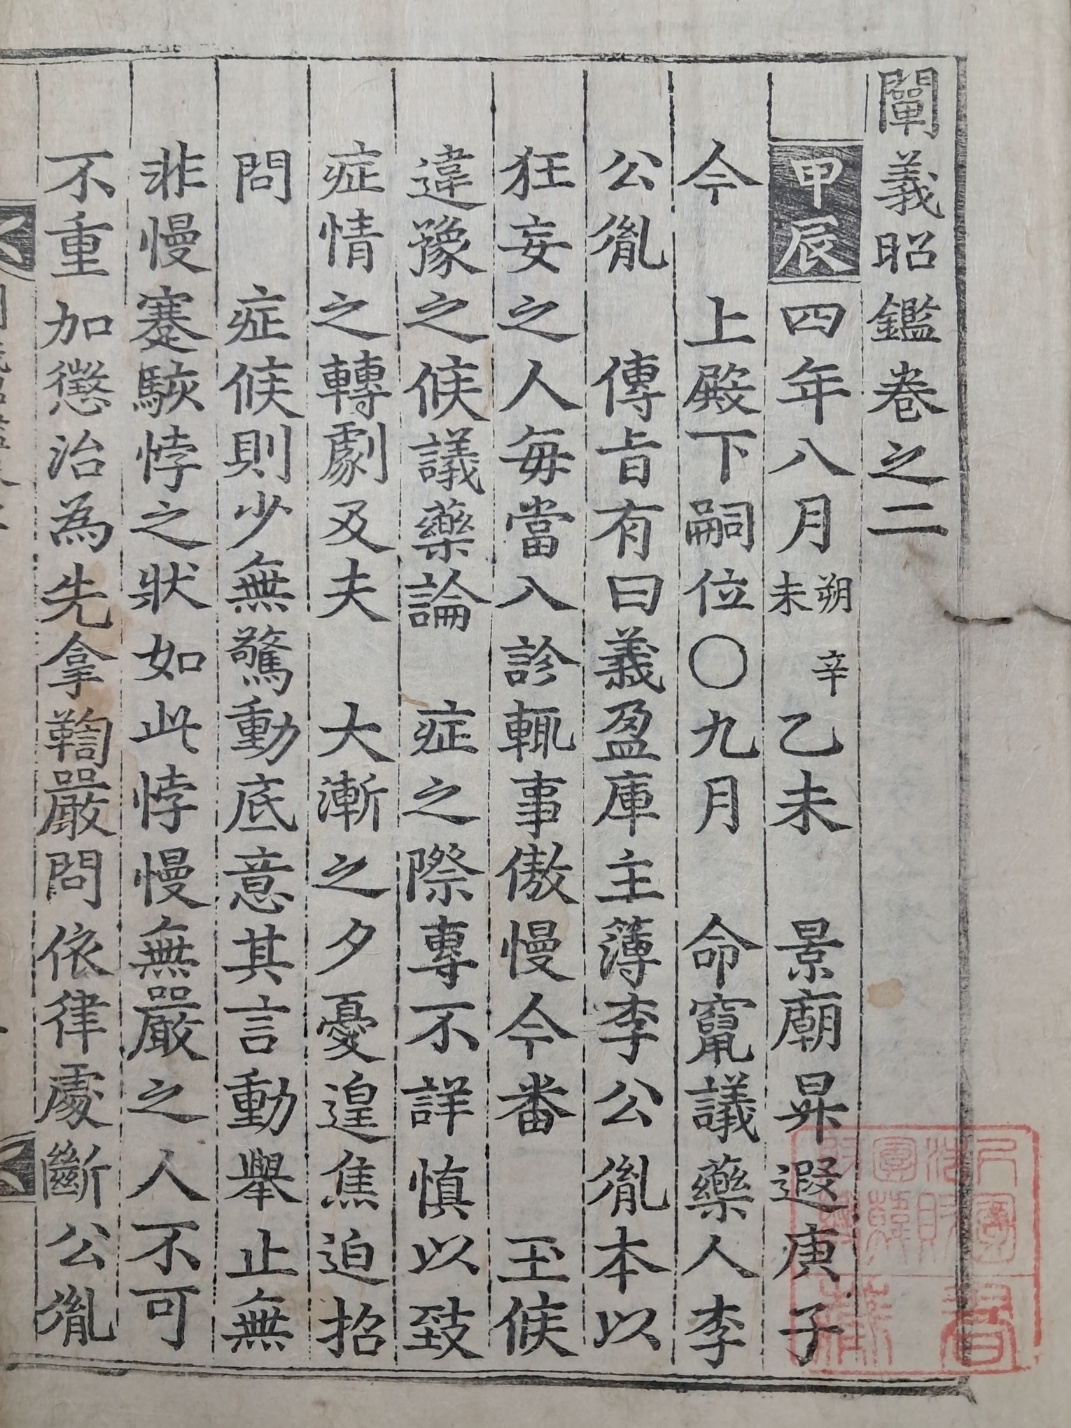 闡義昭鑑卷之二
甲辰四年八月朔辛未乙未 景廟昇遐庚子
今 上殿下嗣位○九月 命竄議藥人李
公胤 傳旨有曰義盈庫主簿李公胤本以
狂妄之人每當入診輒事傲慢今番 玉候
違豫之候議藥論 症之際專不詳愼以致
症情之轉劇及夫 大漸之夕憂遑焦迫招
問 症候則少無驚動底意其言動擧止無
非慢蹇駭悖之狀如此悖慢無嚴之人不可
不重加懲治為先拿鞫嚴問依律處斷公胤